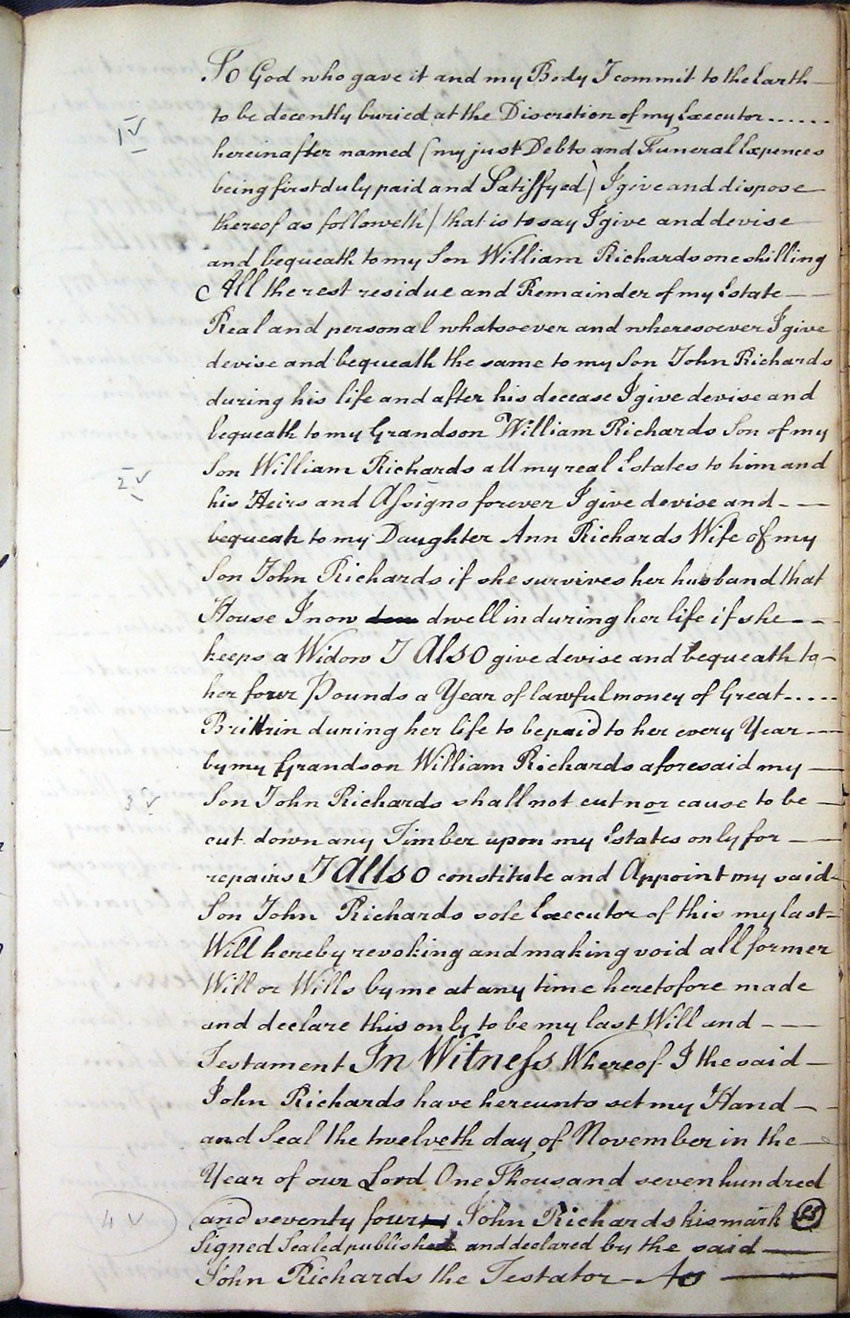 To God who gave it and my Body I commit to the Earth
to be decently buried at the Discretion of my Executor......
1 √
hereinafter named (my just Debts and Funeral Expences
being first duly paid and Satisfyed) I give and dispose
thereof as followeth / that is to say I give and devise
and bequeath to my Son William Richards one shilling
All the rest residue and Remainder of my Estate — —
Real and personal whatsoever and wheresoever I give
devise and bequeath the same to my Son John Richards
during his life and after his decease I give devise and
bequeath to my Grandson William Richards Son of my
Son William Richards all my real Estates to him and
2 √
his Heirs and Assigns forever I give devise and - — —
bequeah to my Daughter Ann Richards Wife of my
Son John Richards if she survives her husband that
House I now dwell in during her life if she — — -
keeps a Widow I Also give devise and bequeath to -
her fower Pounds a Year of lawful money of Great.....
Brittin during her life to be paid to her every Year - — —
by my Grandson William Richards aforesaid my —
3 √
Son John Richards shall not cut nor cause to be —
cut down any Timber upon my Estates only for — —
repairs I Allso constitute and Appoint my said
Son John Richards sole Executor of this my last =
Will hereby revoking and making void all former
Will or Wills by me at any time heretofore made
and declare this only to be my last Will and - — —
Testament In Witness Whereof I the said —
John Richards have hereunto set my Hand — -
and Seal the twelveth day of November in the —
Year of our Lord One Thousand seven hundred
4 √
and seventy four John Richards his mark LS
Signed Sealed published and declared by the said —
John Richards the Testator — As —